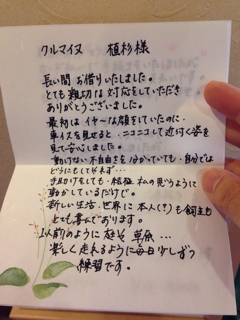 クルマイヌ　植杉様
長い間お借りいたしました。
とても親切な対応をしていただき
ありがとうございました。
最初はイヤ〜な顔をしていたのに、
車イスを見せると、ニコニコして近付く姿を
見て安心しました。
動けない不自由さを分かっていても、自分では
どうにもしてやれず…
手助けをしても、結極 私の思うように
動かしているだけで。
新しい生活・世界に本人(?)も飼主も
とても喜んでおります。
以前のように 庭や 草原…
楽しく走れるように毎日少しずつ
練習です。